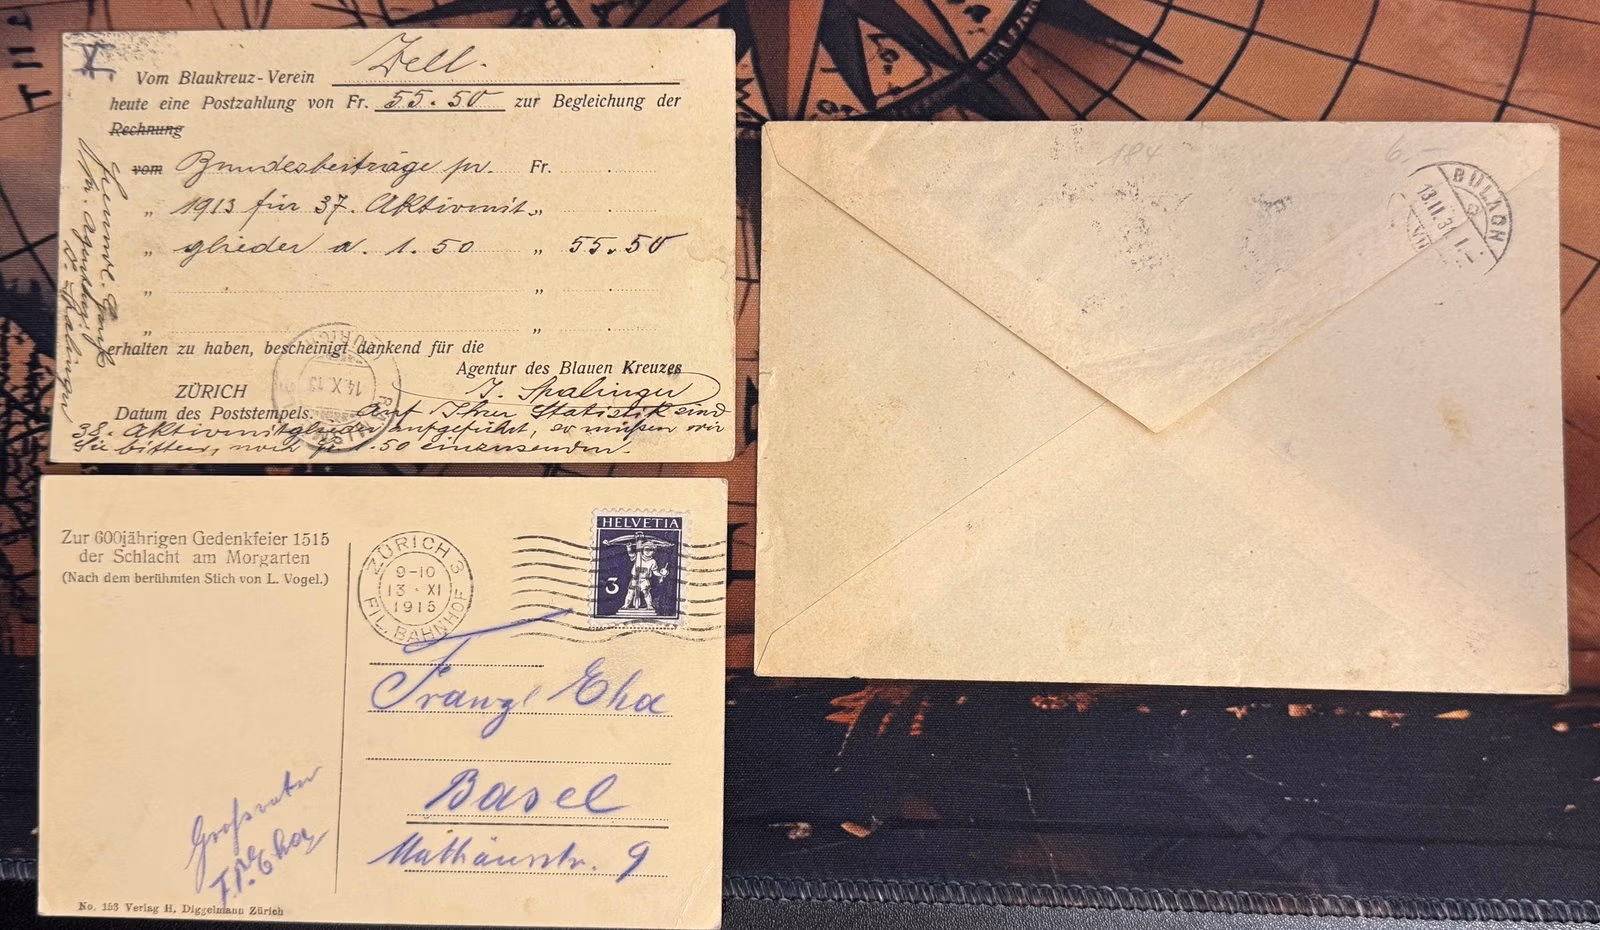 Vom Blaukreuz-Verein Zell.
heute eine Postzahlung von Fr. 55.50 zur Begleichung der
Rechnung
vom Bundesbeiträge pr. Fr.
" 1913 für 37. Aktivmit "
" glieder a. 1.50 " 55.50
" "
" "
erhalten zu haben, bescheinigt dankend für die
Agentur des Blauen Kreuzes
ZÜRICH J. Spalinger
Datum des Poststempels. Auf Ihrer Statistik sind
38. Aktivmitglieder aufgeführt, so müssen wir
Sie bitten, noch Fr. 1.50 einzusenden.
14.X.13
ZÜRICH
Zur 600jährigen Gedenkfeier 1515
der Schlacht am Morgarten
(Nach dem berühmten Stich von L. Vogel.)
ZÜRICH 3
9-10
13 · XI
1915
FIL. BAHNHOF
HELVETIA
3
Franz Eha
Basel
Mathäusstr. 9
Grossvater
Eha
No. 153 Verlag H. Diggelmann Zürich
184
6.-
BULACH
13.II.3